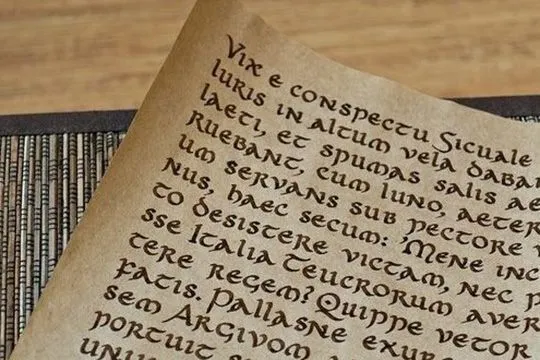 Vix e conspectu Sicuale
luris in altum vela daban
laeti, et spumas salis ae
ruebant, cum Iuno, aeter
um servans sub pectore v
nus, haec secum: 'Mene inc
to desistere victam, nec p
sse Italia Teucrorum aver
tere regem? Quippe vetor
fatis. Pallasne exur
sem Argivom
portuit s
unius